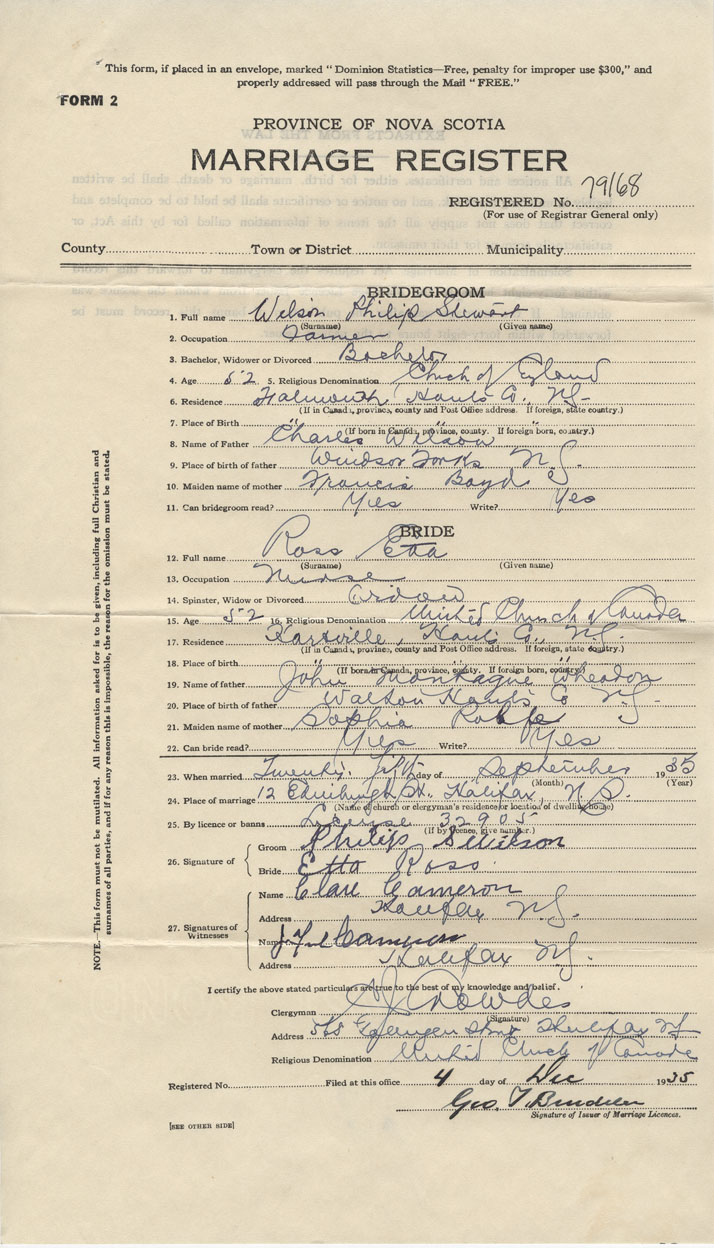 This form, if placed in an envelope, marked "Dominion Statistics—Free, penalty for improper use $300," and
properly addressed will pass through the Mail "FREE."
FORM 2
PROVINCE OF NOVA SCOTIA
MARRIAGE REGISTER
REGISTERED No. 79168
(For use of Registrar General only)
County Town or District Municipality
BRIDEGROOM
1. Full name Wilson Philip Stewart
(Surname) (Given name)
2. Occupation Farmer
3. Bachelor, Widower or Divorced Bachelor
4. Age 52 5. Religious Denomination Church of England
6. Residence Falmouth, Hants Co., N.S.
(If in Canada, province, county and Post Office address. If foreign, state country.)
7. Place of Birth " " "
(If born in Canada, province, county. If foreign born, country.)
8. Name of Father Charles Wilson
9. Place of birth of father Windsor Forks N.S.
10. Maiden name of mother Francis Boyd
11. Can bridegroom read? Yes Write? Yes
BRIDE
12. Full name Ross Etta
(Surname) (Given name)
13. Occupation Nurse
14. Spinster, Widow or Divorced Widow
15. Age 52 16. Religious Denomination United Church of Canada
17. Residence Hantsville, Hants Co., N.S.
(If in Canada, province, county and Post Office address. If foreign, state country.)
18. Place of birth " " "
(If born in Canada, province, county. If foreign born, country.)
19. Name of father John Montague
20. Place of birth of father Walton Hants Co N.S.
21. Maiden name of mother Sophia
22. Can bride read? Yes Write? Yes
23. When married Twenty fifth day of September 1935
(Month) (Year)
24. Place of marriage 12 Edinburgh St. Halifax, N.S.
(Name of church or clergyman's residence or location of dwelling house)
25. By licence or banns License 32905
(If by licence, give number.)
26. Signature of
Groom Philip S Wilson
Bride Etta Ross
27. Signatures of Witnesses
Name Clare Cameron
Address Halifax N.S.
Name Cameron
Address Halifax N.S.
I certify the above stated particulars are true to the best of my knowledge and belief.
Clergyman
(Signature)
Address Halifax N.S.
Religious Denomination United Church of Canada
Registered No. Filed at this office 4 day of Dec 1935
Geo. T.
Signature of Issuer of Marriage Licences.
[SEE OTHER SIDE]
NOTE.—This form must not be mutilated. All information asked for is to be given, including full Christian and
surnames of all parties, and if for any reason this is impossible, the reason for the omission must be stated.